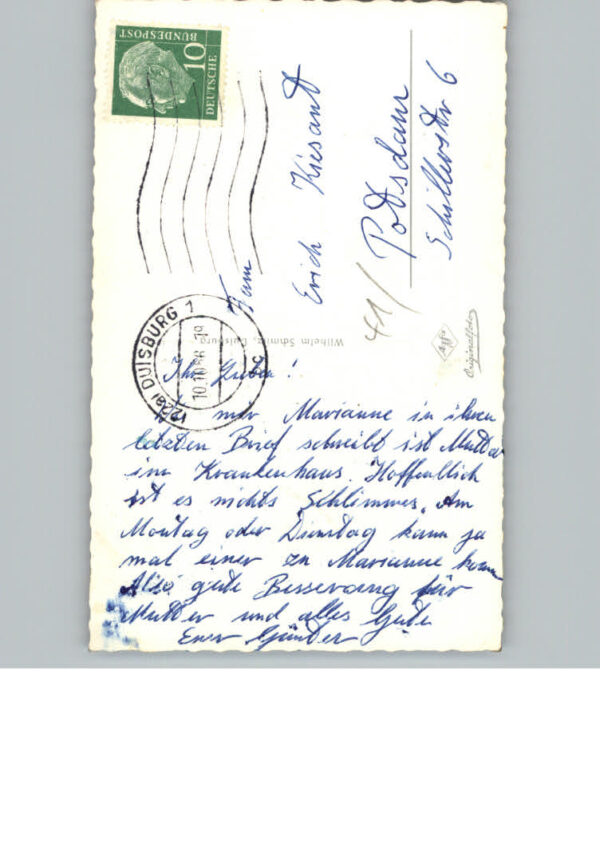 DEUTSCHE
BUNDESPOST
10
(22a) DUISBURG 1
10.10.56
Fam
Erich Kiesant
Potsdam
Schillerstr 6
41/
Wilhelm Schmitz, Duisburg
Agfa
Originalfoto
Ihr Lieben!
mir Marianne in ihren
letzten Brief schreibt ist Mutter
im Krankenhaus. Hoffentlich
ist es nichts Schlimmes. Am
Montag oder Dienstag kann ja
mal einer zu Marianne
Also gute Besserung für
Mutter und alles Gute
Euer Günter